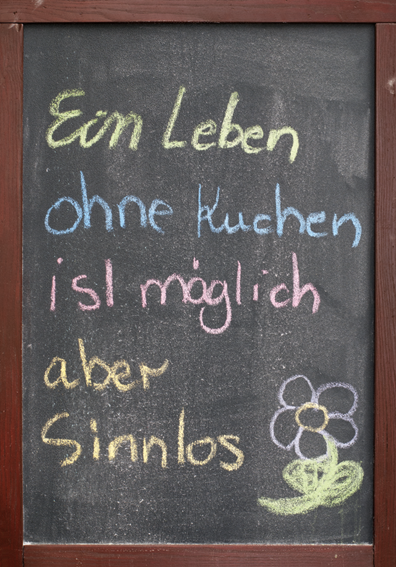 Ein Leben
ohne Kuchen
ist möglich
aber
Sinnlos